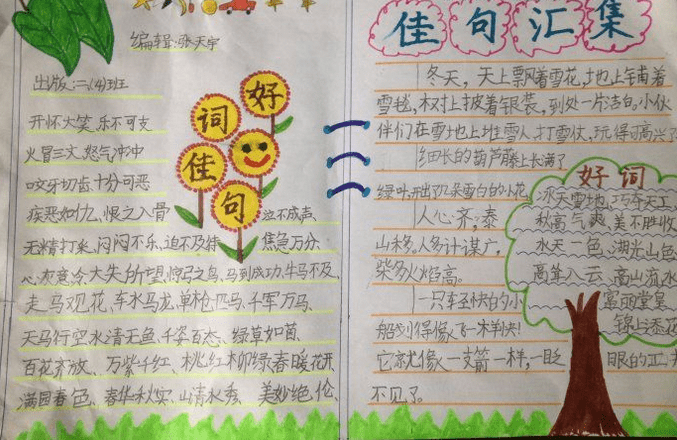 编辑:张天宇
出版:二(4)班
好词佳句
开怀大笑、乐不可支
火冒三丈、怒气冲冲
咬牙切齿、十分可恶
疾恶如仇、恨之入骨 泣不成声、
无精打采、闷闷不乐、迫不及待 焦急万分、
心灰意冷、大失所望、惊弓之鸟、马到成功、牛马不及、
走马观花、车水马龙、单枪匹马、千军万马、
天马行空、水清无鱼、千姿百态、绿草如茵、
百花齐放、万紫千红、桃红柳绿、春暖花开、
满园春色、春华秋实、山清水秀、美妙绝伦、
佳句汇集
冬天,天上飘着雪花,地上铺着
雪毯,树上披着银装,到处一片洁白,小伙
伴们在雪地上堆雪人,打雪仗,玩得可高兴了
细长的葫芦藤上长满了
绿叶,开出了几朵雪白的小花
人心齐,泰
山移。人多计谋广,
柴多火焰高。
一只轻快的小
船划得像飞一样
它就像一支箭一样,一眨 眼的工夫
不见了。
好词
冰天雪地、巧夺天工
秋高气爽、美不胜收
水天一色、湖光山色
高耸入云、高山流水
富丽堂皇
锦上添花